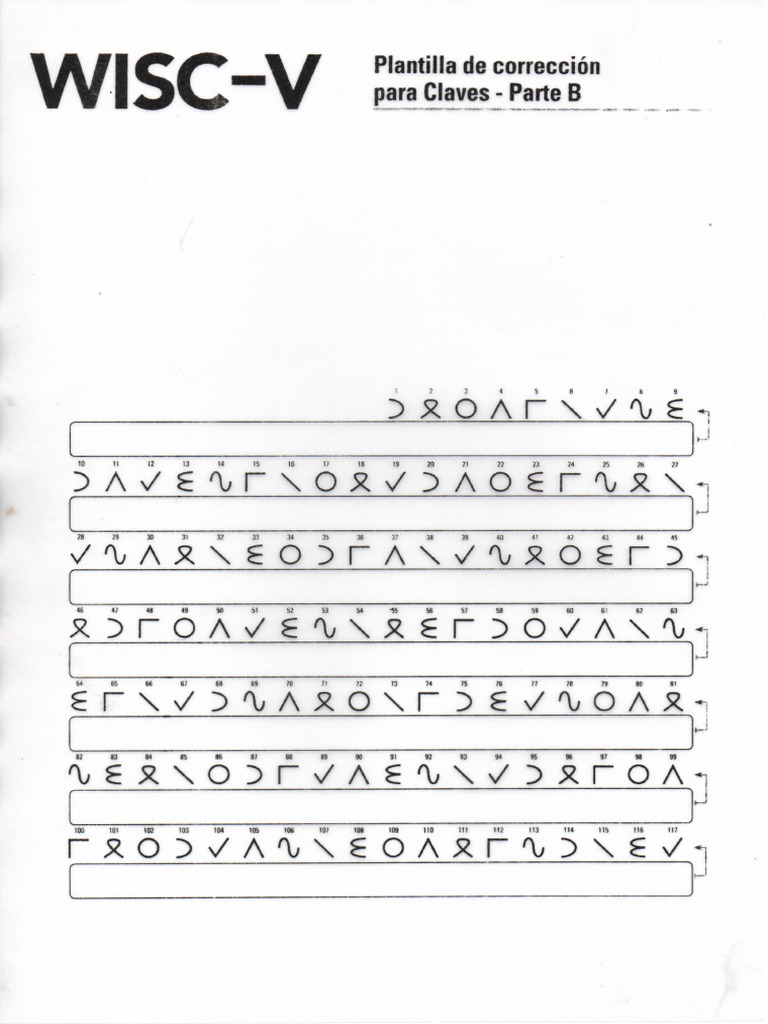 WISC-V
Plantilla de corrección
para Claves - Parte B
1 2 3 4 5 6 7 8 9
10 11 12 13 14 15 16 17 18 19 20 21 22 23 24 25 26 27
28 29 30 31 32 33 34 35 36 37 38 39 40 41 42 43 44 45
46 47 48 49 50 51 52 53 54 55 56 57 58 59 60 61 62 63
64 65 66 67 68 69 70 71 72 73 74 75 76 77 78 79 80 81
82 83 84 85 86 87 88 89 90 91 92 93 94 95 96 97 98 99
100 101 102 103 104 105 106 107 108 109 110 111 112 113 114 115 116 117